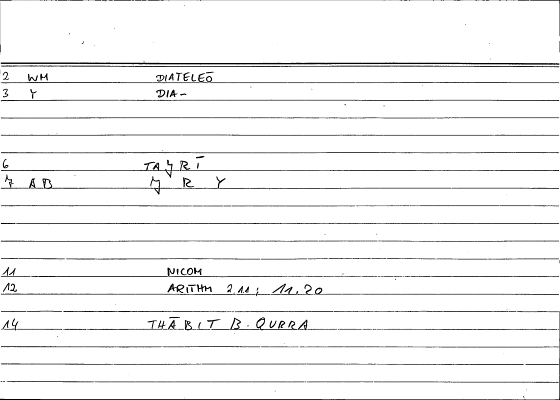 2 WM DIATELEŌ
3 Y DIA-
6 TAʒRĪ
7 AB ʒ R Y
11 NICOM
12 ARITHM 2,11; 11.20
14 THĀBIT B. QURRA